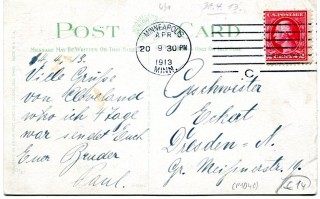 POST CARD
MESSAGE MAY BE WRITTEN ON THIS
MINNEAPOLIS
APR
20 9 30 PM
1913
MINN.
C
Viele Grüße
von Cleveland
wo ich 4 Tage
war sendet Euch
Euer Bruder
Paul.
Geschwister
Eckat
Dresden-N.
Gr. Meißnerstr.